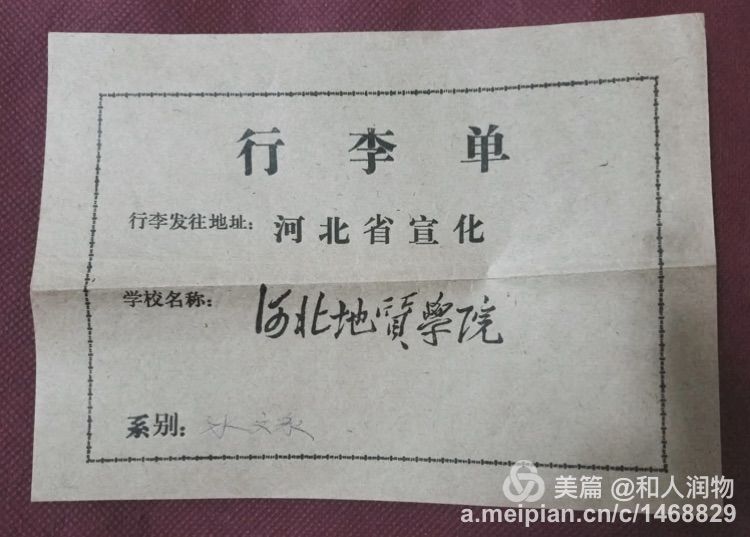 行李单
行李发往地址：河北省宣化
学校名称：河北地質學院
系别：水文系
美篇 @和人润物
a.meipian.cn/c/1468829